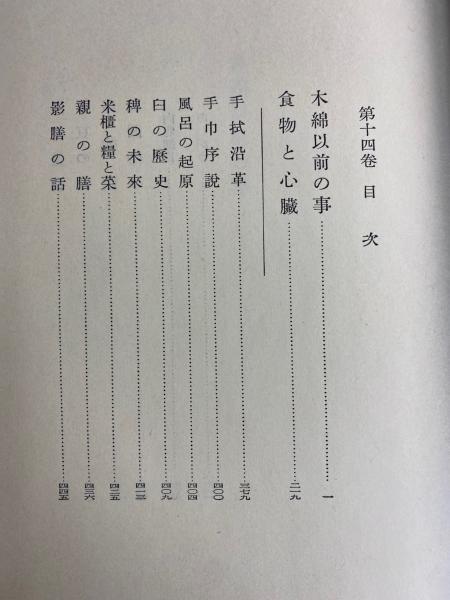 第十四卷 目次
木綿以前の事 一
食物と心臓 二一九
手拭沿革 三七九
手巾序說 四〇〇
風呂の起原 四〇四
臼の歷史 四〇九
稗の未來 四一三
米櫃と糧と菜 四二五
親の膳 四三六
影膳の話 四四五